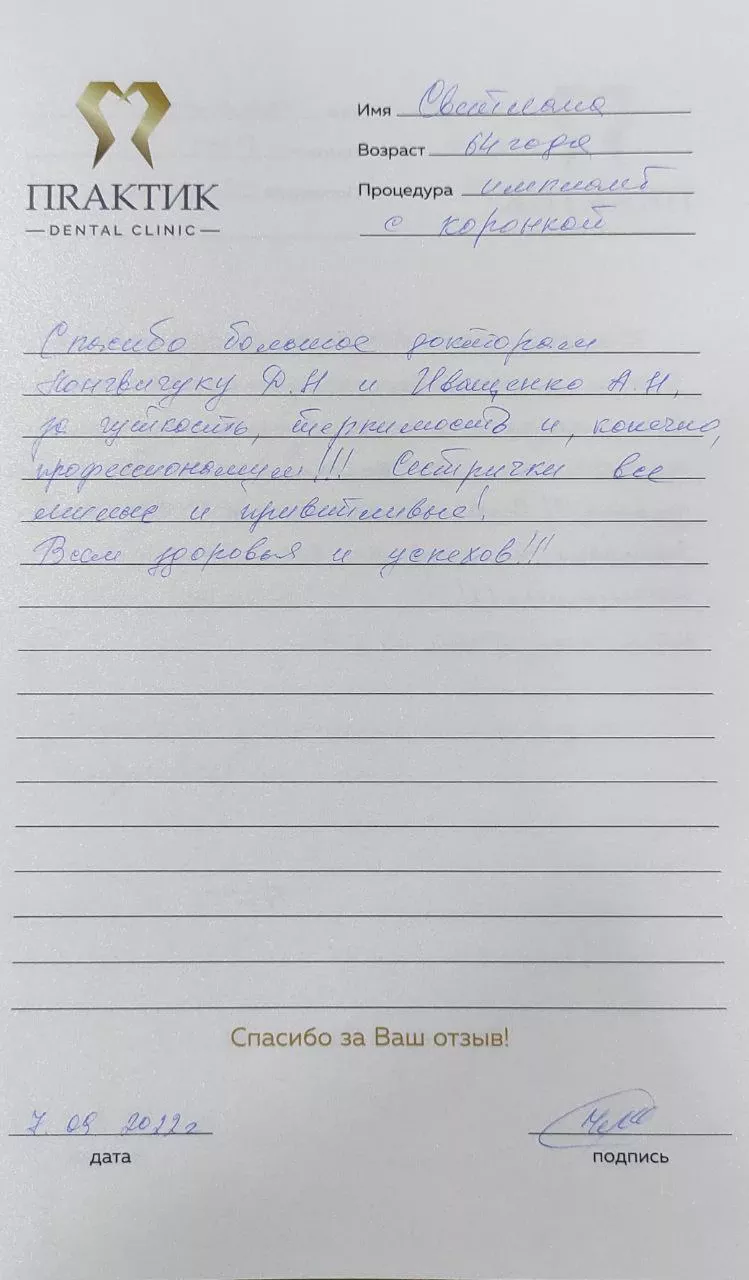 ПRAKTИК
DENTAL CLINIC
Имя Світлана
Возраст 64 года
Процедура имплант
с коронкой
Спасибо большое докторам
Д.Н и Иващенко А.Н,
за чуткость, терпимость и, конечно,
профессионализм!!! Сестрички все
милые и приветливые!
Всем здоровья и успехов!!!
Спасибо за Ваш отзыв!
7.09 2022г
дата
подпись